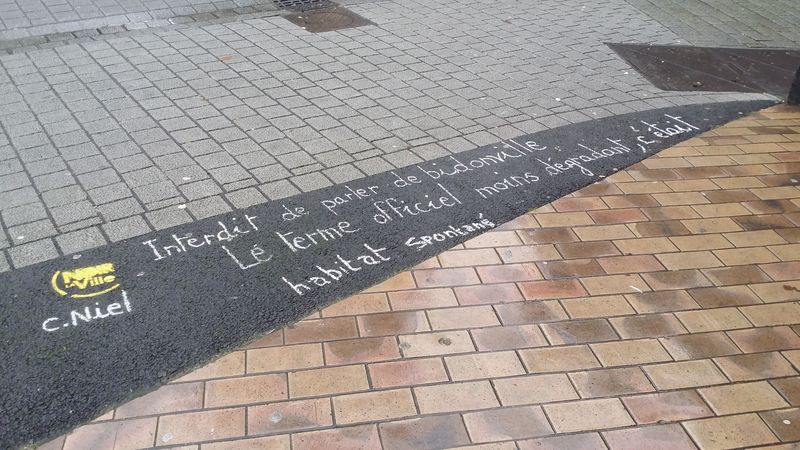 Interdit de parler de bidonville
Le terme officiel moins dégradant, c'était
habitat spontané
NOIR
Ville
C. Niel